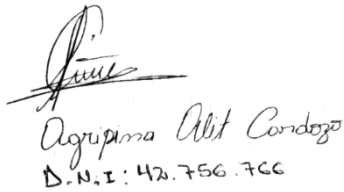 Agripina Alit Condozo
D.N.I: 42.756.766